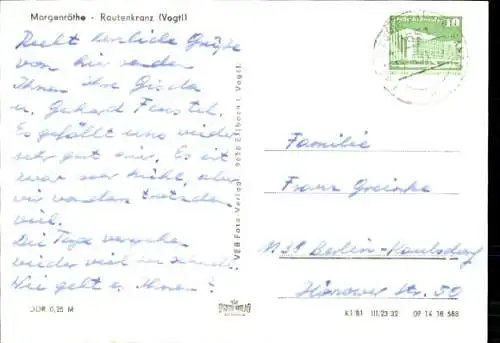 Morgenröthe - Rautenkranz (Vogtl)
Recht herzliche Grüße
von hier senden
Ihnen Ihre Gisela
u. Gerhard
Es gefällt uns wieder
sehr gut hier. Es ist
zwar sehr kühl, aber
wir wandern trotzdem
viel.
Die Tage vergehen
wieder viel zu schnell.
Wie geht es Ihnen?
DDR 0,25 M
VEB Foto-Verlag 9658 Erlbach i. Vogtl.
10
Familie
Franz Greinke
1138 Berlin-Kaulsdorf
Hönower Str. 50
K1/81 III.23.32 OF 14 16 588